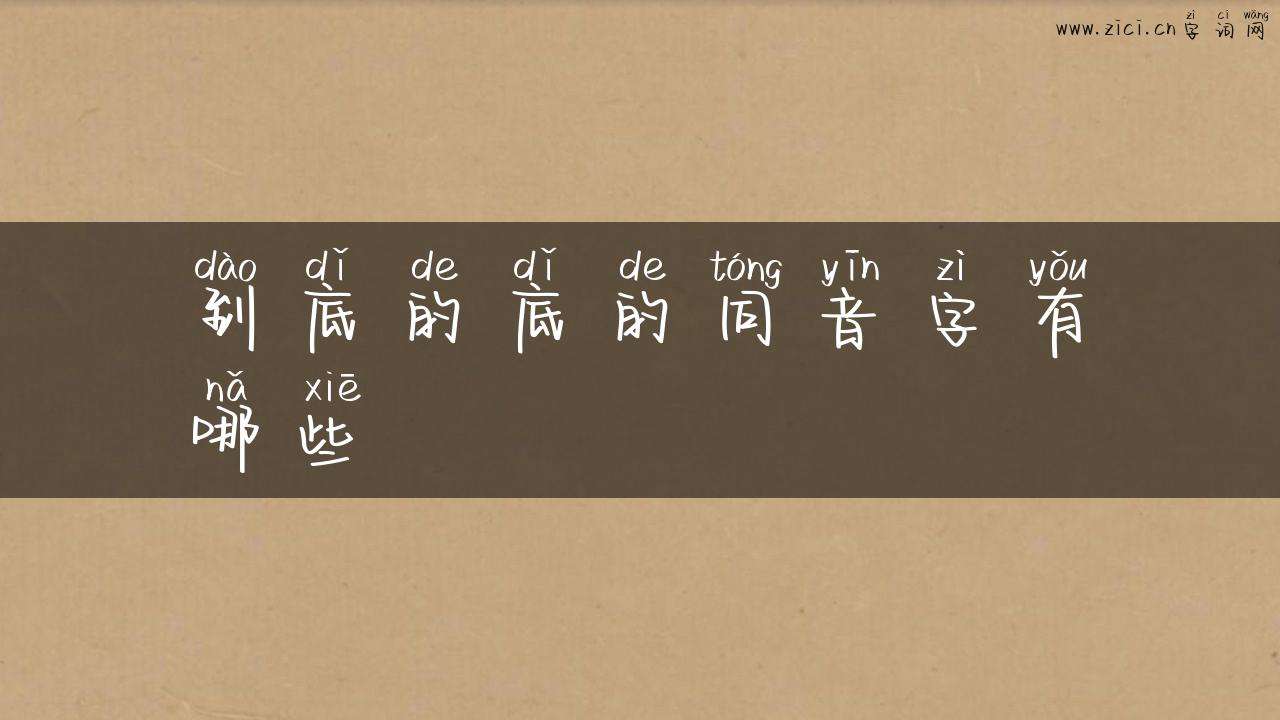 zì cí wǎng
www.zici.cn 字 词 网
dào dǐ de dǐ de tóng yīn zì yǒu
到 底 的 底 的 同 音 字 有
nǎ xiē
哪 些